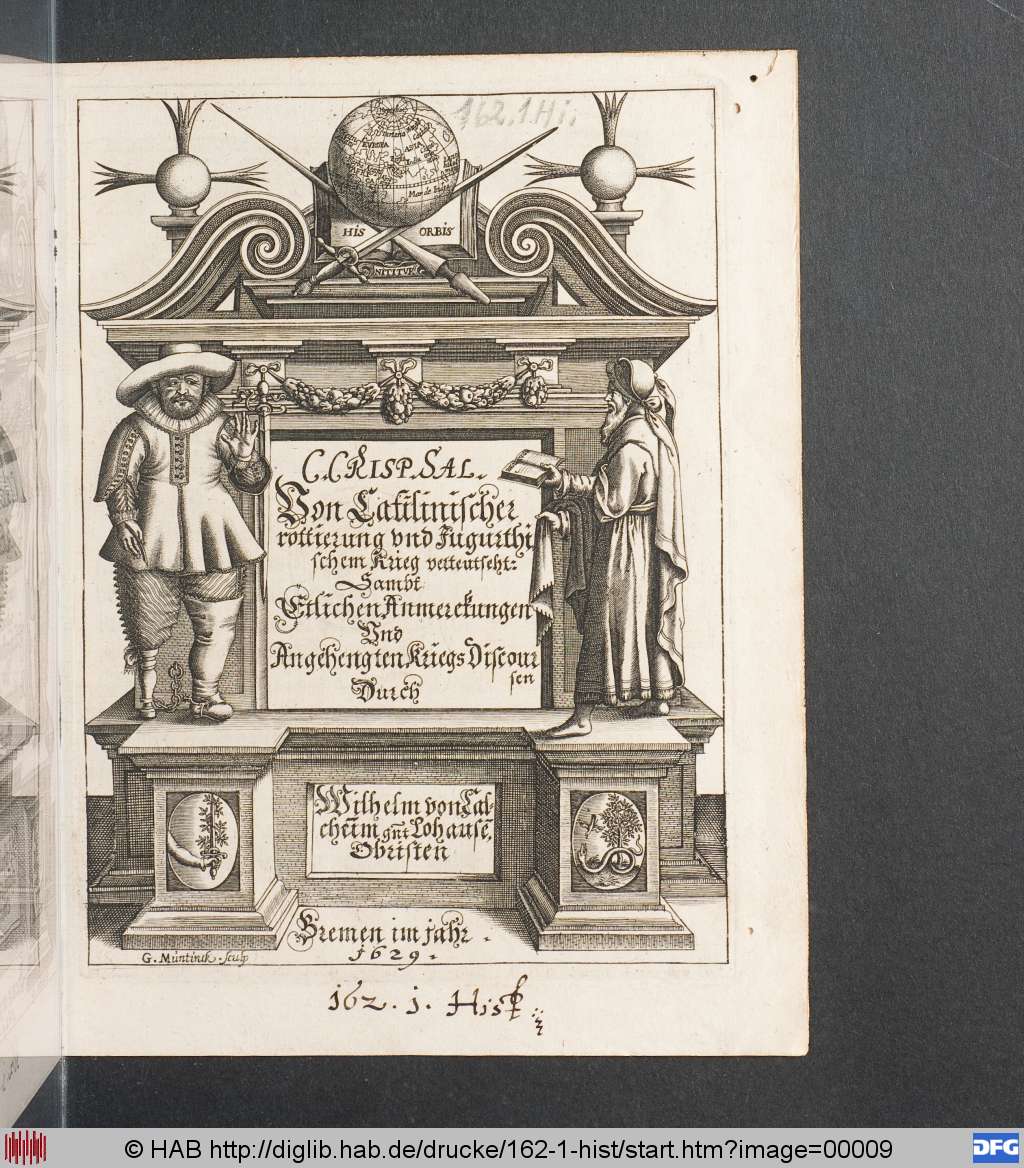 162.1.Hi.
EVROPA
ASIA
Mar de India
HIS ORBIS
NITITUR
C. CRISP. SAL.
Von Catilinischer
rottierung vnd Jugurthi
schem Krieg verteutscht:
Sambt
Etlichen Anmerckungen
Vnd
Angehengten Kriegs Discour
sen
Durch
Wilhelm von Cal-
cheim gnt Lohausē,
Obristen
Bremen im jahr.
1629.
G. Müntinck. sculp
162. 1. Hist
© HAB http://diglib.hab.de/drucke/162-1-hist/start.htm?image=00009
DFG